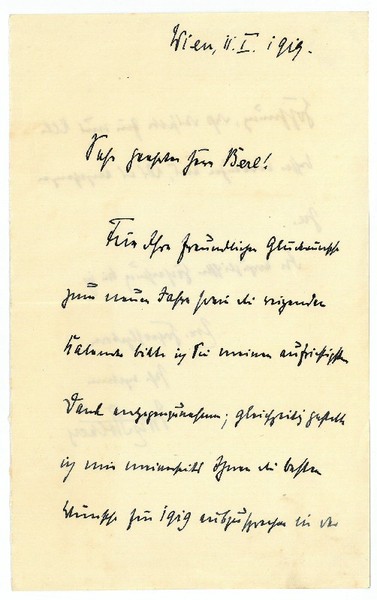 Wien, 11. I. 1919.
Sehr geehrter Herr Berl!
Für Ihre freundlichen Glückwünsche
zum neuen Jahre sowie die reizenden
Kalender bitte ich Sie meinen aufrichtigsten
Dank entgegenzunehmen; gleichzeitig gestatte
ich mir meinerseits Ihnen die besten
Wünsche für 1919 auszusprechen in der